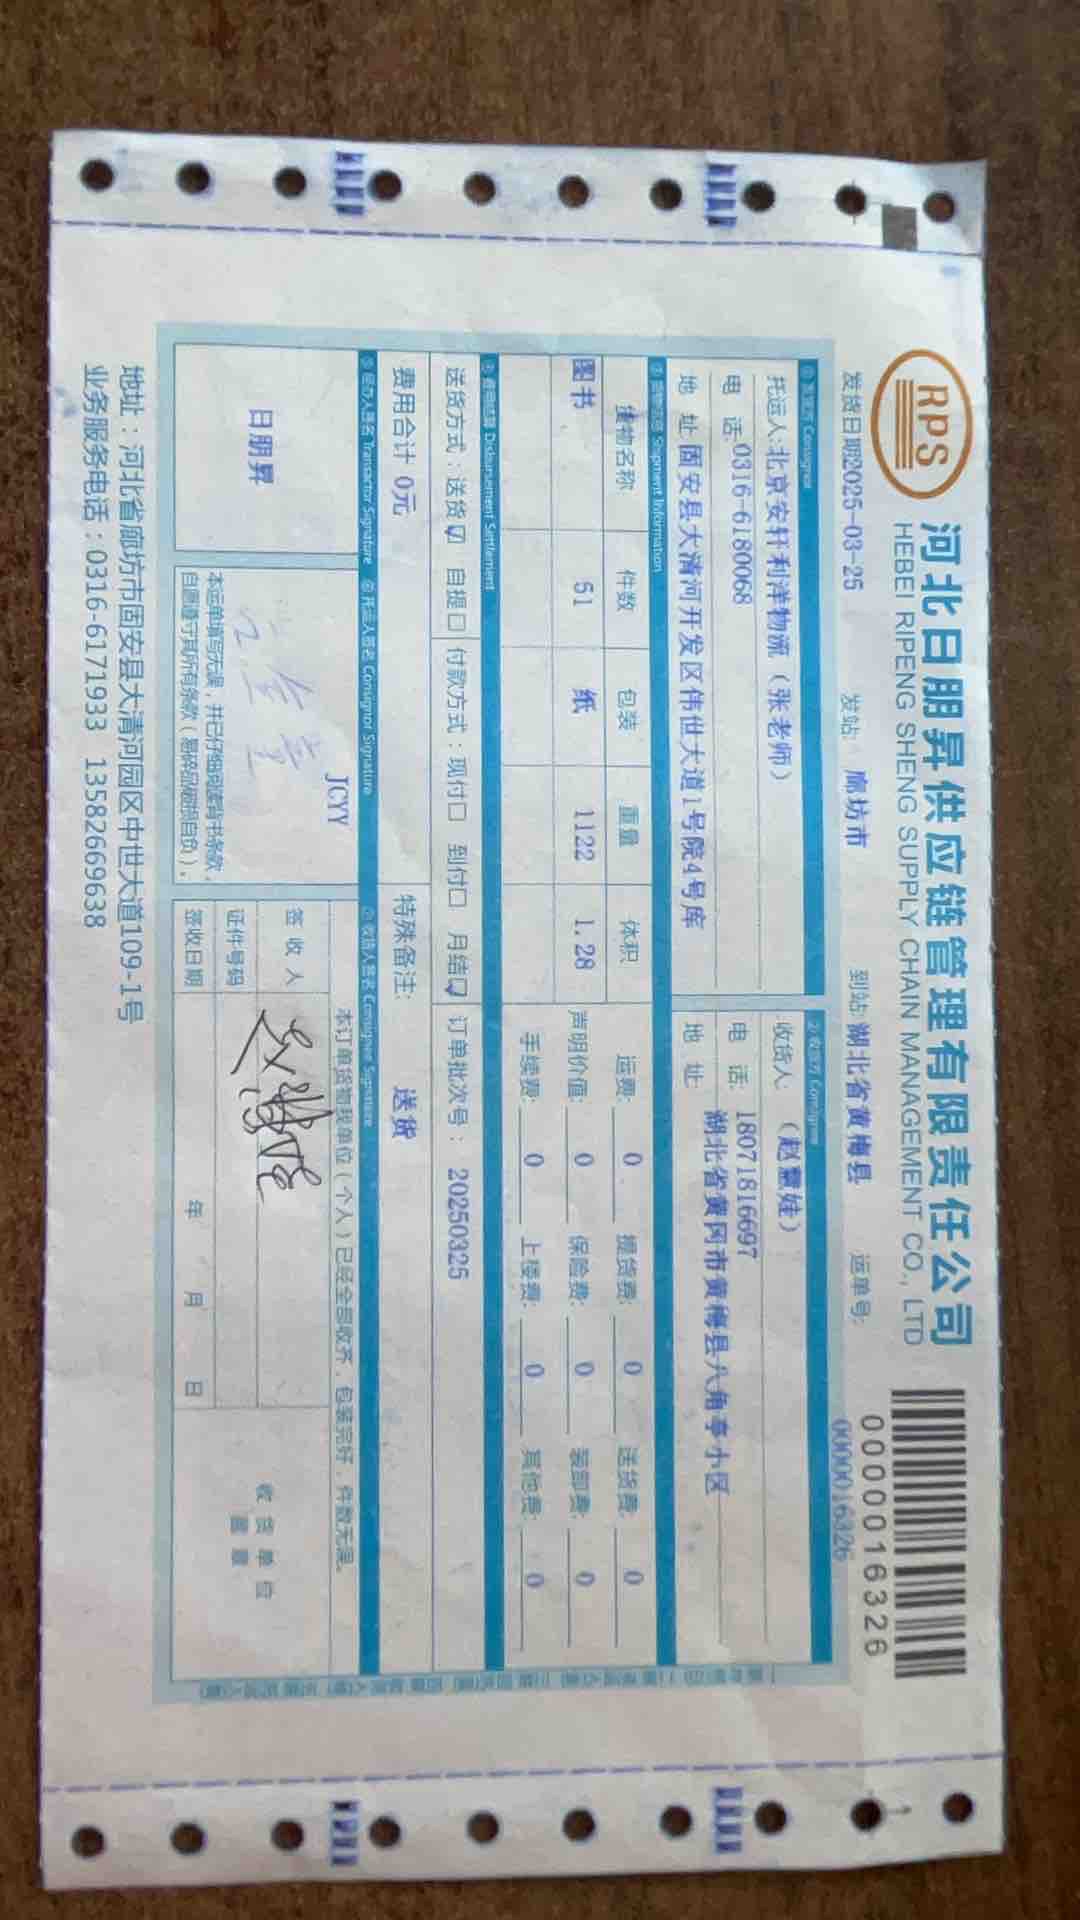 RPS
河北日朋昇供应链管理有限责任公司
HEBEI RIPENG SHENG SUPPLY CHAIN MANAGEMENT CO., LTD
0000016326
发货日期2025-03-25 发站: 廊坊市 到站: 湖北省黄梅县 运单号: 0000016326
托运人:北京安轩利洋物流（张老师）
电 话:0316-6180068
地 址:固安县大清河开发区伟世大道1号院4号库
收货人: （赵慧娃）
电 话: 18071816697
地 址: 湖北省黄冈市黄梅县八角亭小区
Shipment Information
货物名称 件数 包装 重量 体积
图书 51 纸 1122 1.28
运费: 0 提货费: 0 送货费: 0
声明价值: 0 保险费: 0 装卸费: 0
手续费: 0 上楼费: 0 其他费: 0
Disbursement Settlement
送货方式：送货☑ 自提☐ 付款方式：现付☐ 到付☐ 月结☑ 订单批次号： 20250325
费用合计 0元 特殊备注: 送货
Transactor Signature ⑥ 托运人签名 Consignor Signature ⑦ 收货人签名 Consignee Signature
日朋昇
JCYY
本运单填写无误，并已仔细阅读背书条款，
自愿遵守其所有条款（易碎品破损自负）。
本订单货物我单位（个人）已经全部收齐，包装完好，件数无误。
签 收 人
证件号码
签收日期 年 月 日
收 货 单 位
盖 章
地址：河北省廊坊市固安县大清河园区中世大道109-1号
业务服务电话：0316-6171933 13582669638